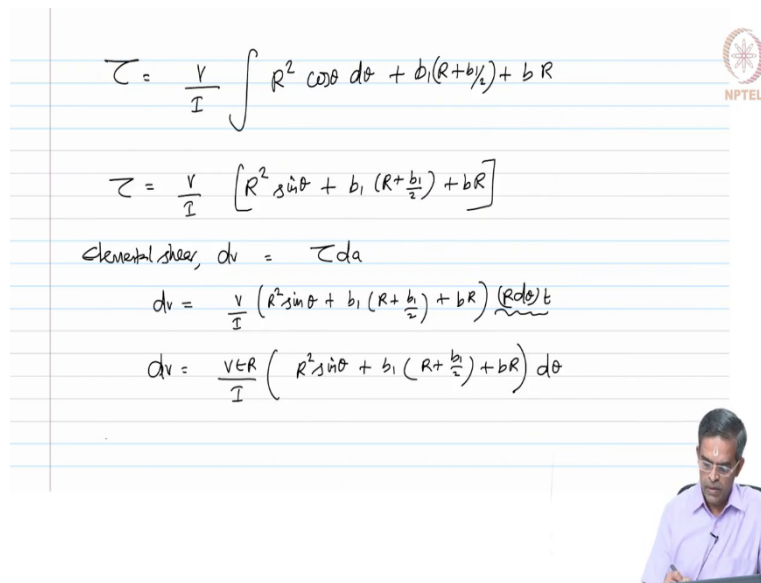 τ = V/I ∫ R² cosθ dθ + b₁(R+b₁/₂) + b R
NPTEL
τ = V/I [R² sinθ + b₁ (R+b₁/2) + bR]
Elemental shear, dv = τda
dv = V/I (R² sinθ + b₁ (R+b₁/2) + bR) (Rdθ)t
dv = VtR/I (R² sinθ + b₁ (R+b₁/2) + bR) dθ